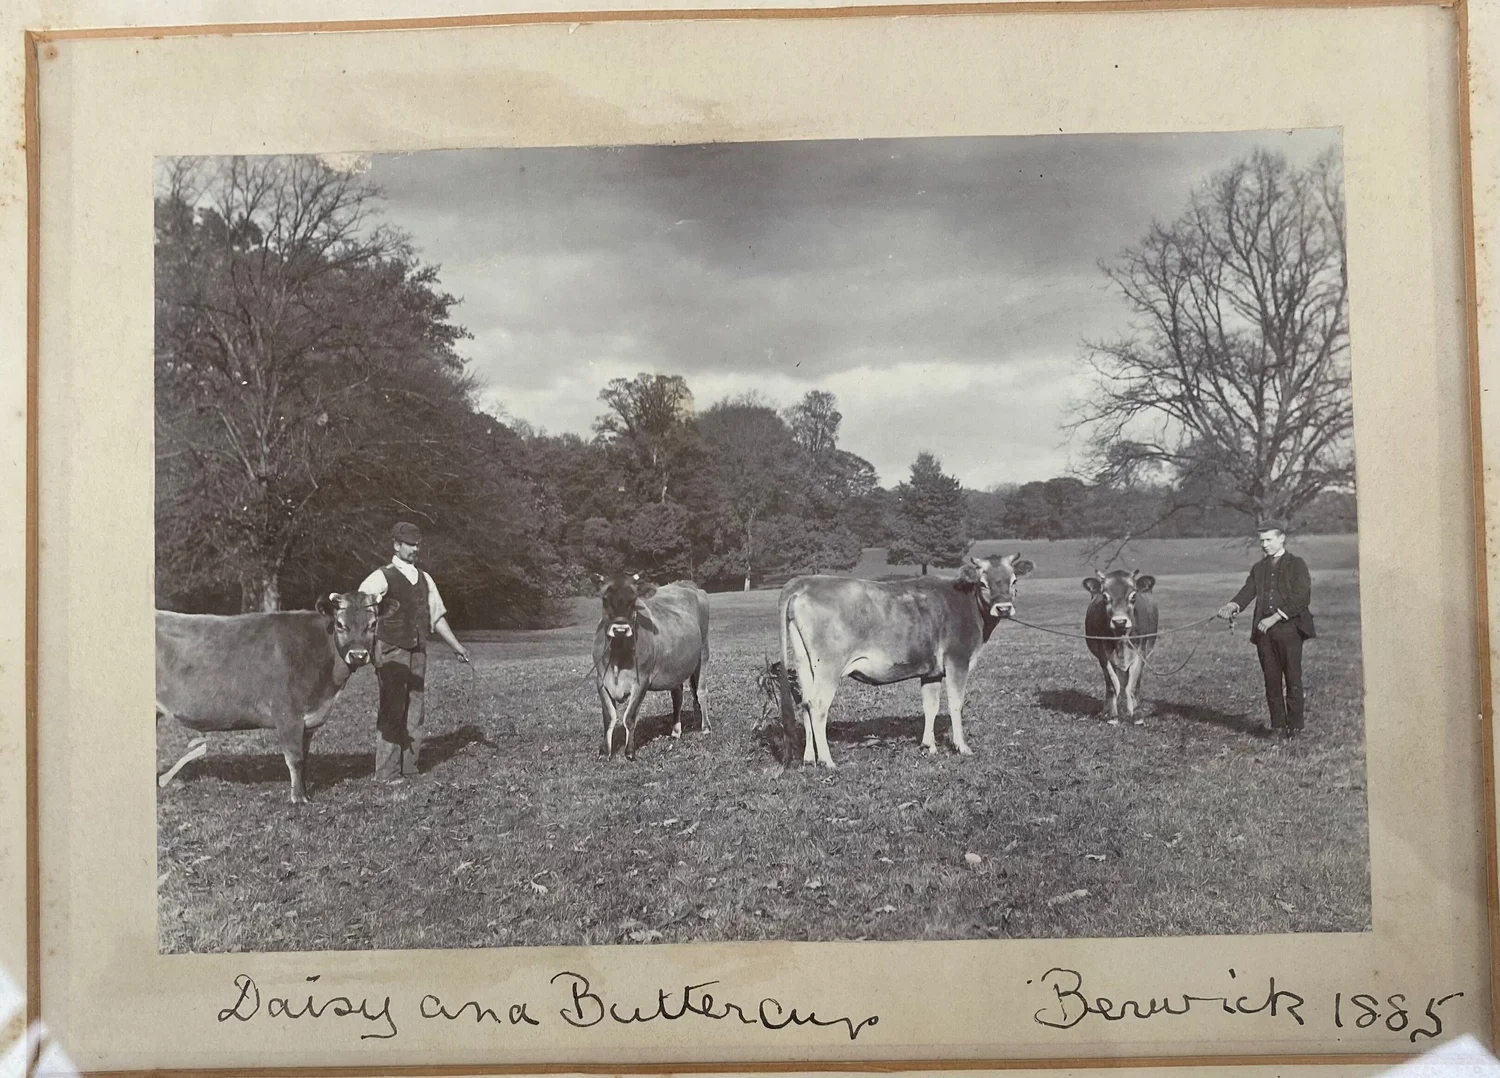 Daisy and Buttercup Berwick 1885